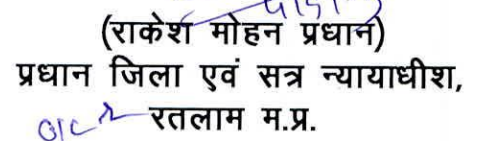 (राकेश मोहन प्रधान)
प्रधान जिला एवं सत्र न्यायाधीश,
रतलाम म.प्र.